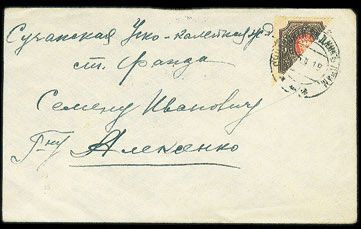 Сучанская Узко-колейная ж. д.
ст. Фанза
Семену Ивановичу
Г-ну Алексенко